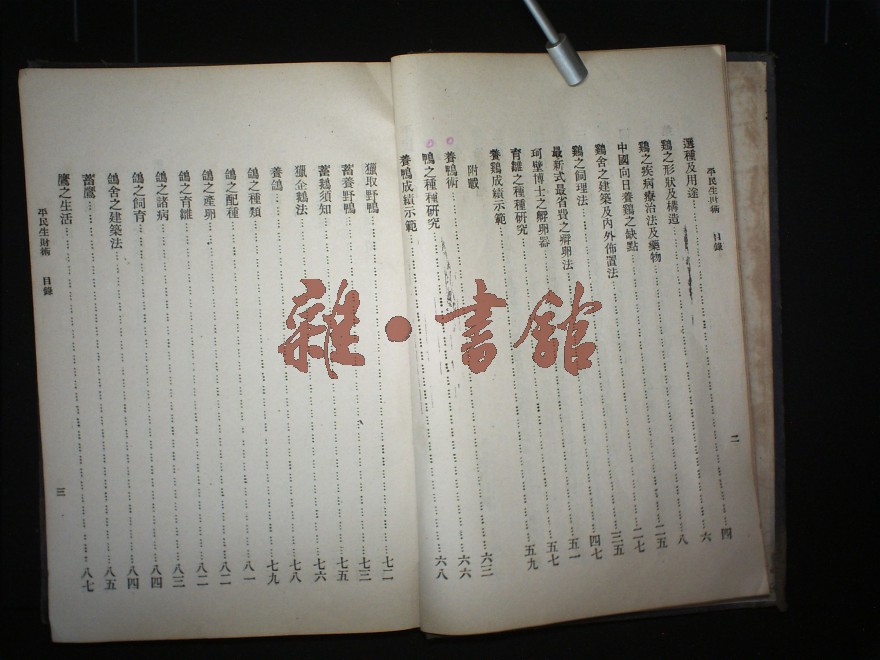 平民生財術 目錄 二
選種及用途……四
鷄之形狀及構造……六
鷄之疾病療治法及藥物……八
中國向日養鷄之缺點……二五
鷄舍之建築及內外佈置法……二七
鷄之飼理法……三五
最新式最省費之孵卵法……四七
珂壁博士之孵卵器……五一
育雛之種種研究……五七
養鷄成績示範……五九
附載
養鴨術……六三
鴨之種種研究……六六
養鴨成績示範……六八
獵取野鴨……七二
蓄養野鴨……七三
蓄鵝須知……七五
獵企鵝法……七六
養鴿……七八
鴿之種類……七九
鴿之配種……八一
鴿之產卵……八二
鴿之育雛……八二
鴿之諸病……八三
鴿之飼育……八四
鴿舍之建築法……八四
蓄鷹……八五
鷹之生活……八七
平民生財術 目錄 三
雜·書舘